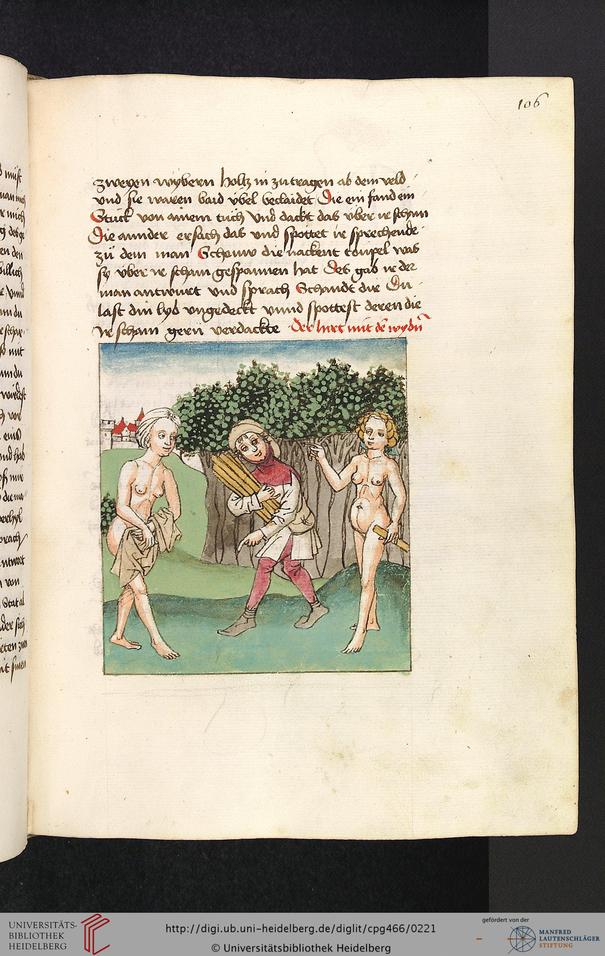 106
zweyen wybern holtz in zu tragen ab dem veld
vnd sie waren baid vbel beclaidet Die ein fand ein
Stuck von ainem tuch Vnd dackt das vber ir scham
Die annder ersach das vnd spottet ir sprechende
zu dem man Schauw die nackent was
sy vber ir scham gespannen hat Des gab ir der
man antwurt vnd sprach Schandt die Du
last din lyb vngedeckt vnnd spottest deren die
Ir scham geren verdackte Der hirt mit
UNIVERSITÄTS-
BIBLIOTHEK
HEIDELBERG
http://digi.ub.uni-heidelberg.de/diglit/cpg466/0221
© Universitätsbibliothek Heidelberg
gefördert von der
MANFRED
LAUTENSCHLÄGER
STIFTUNG